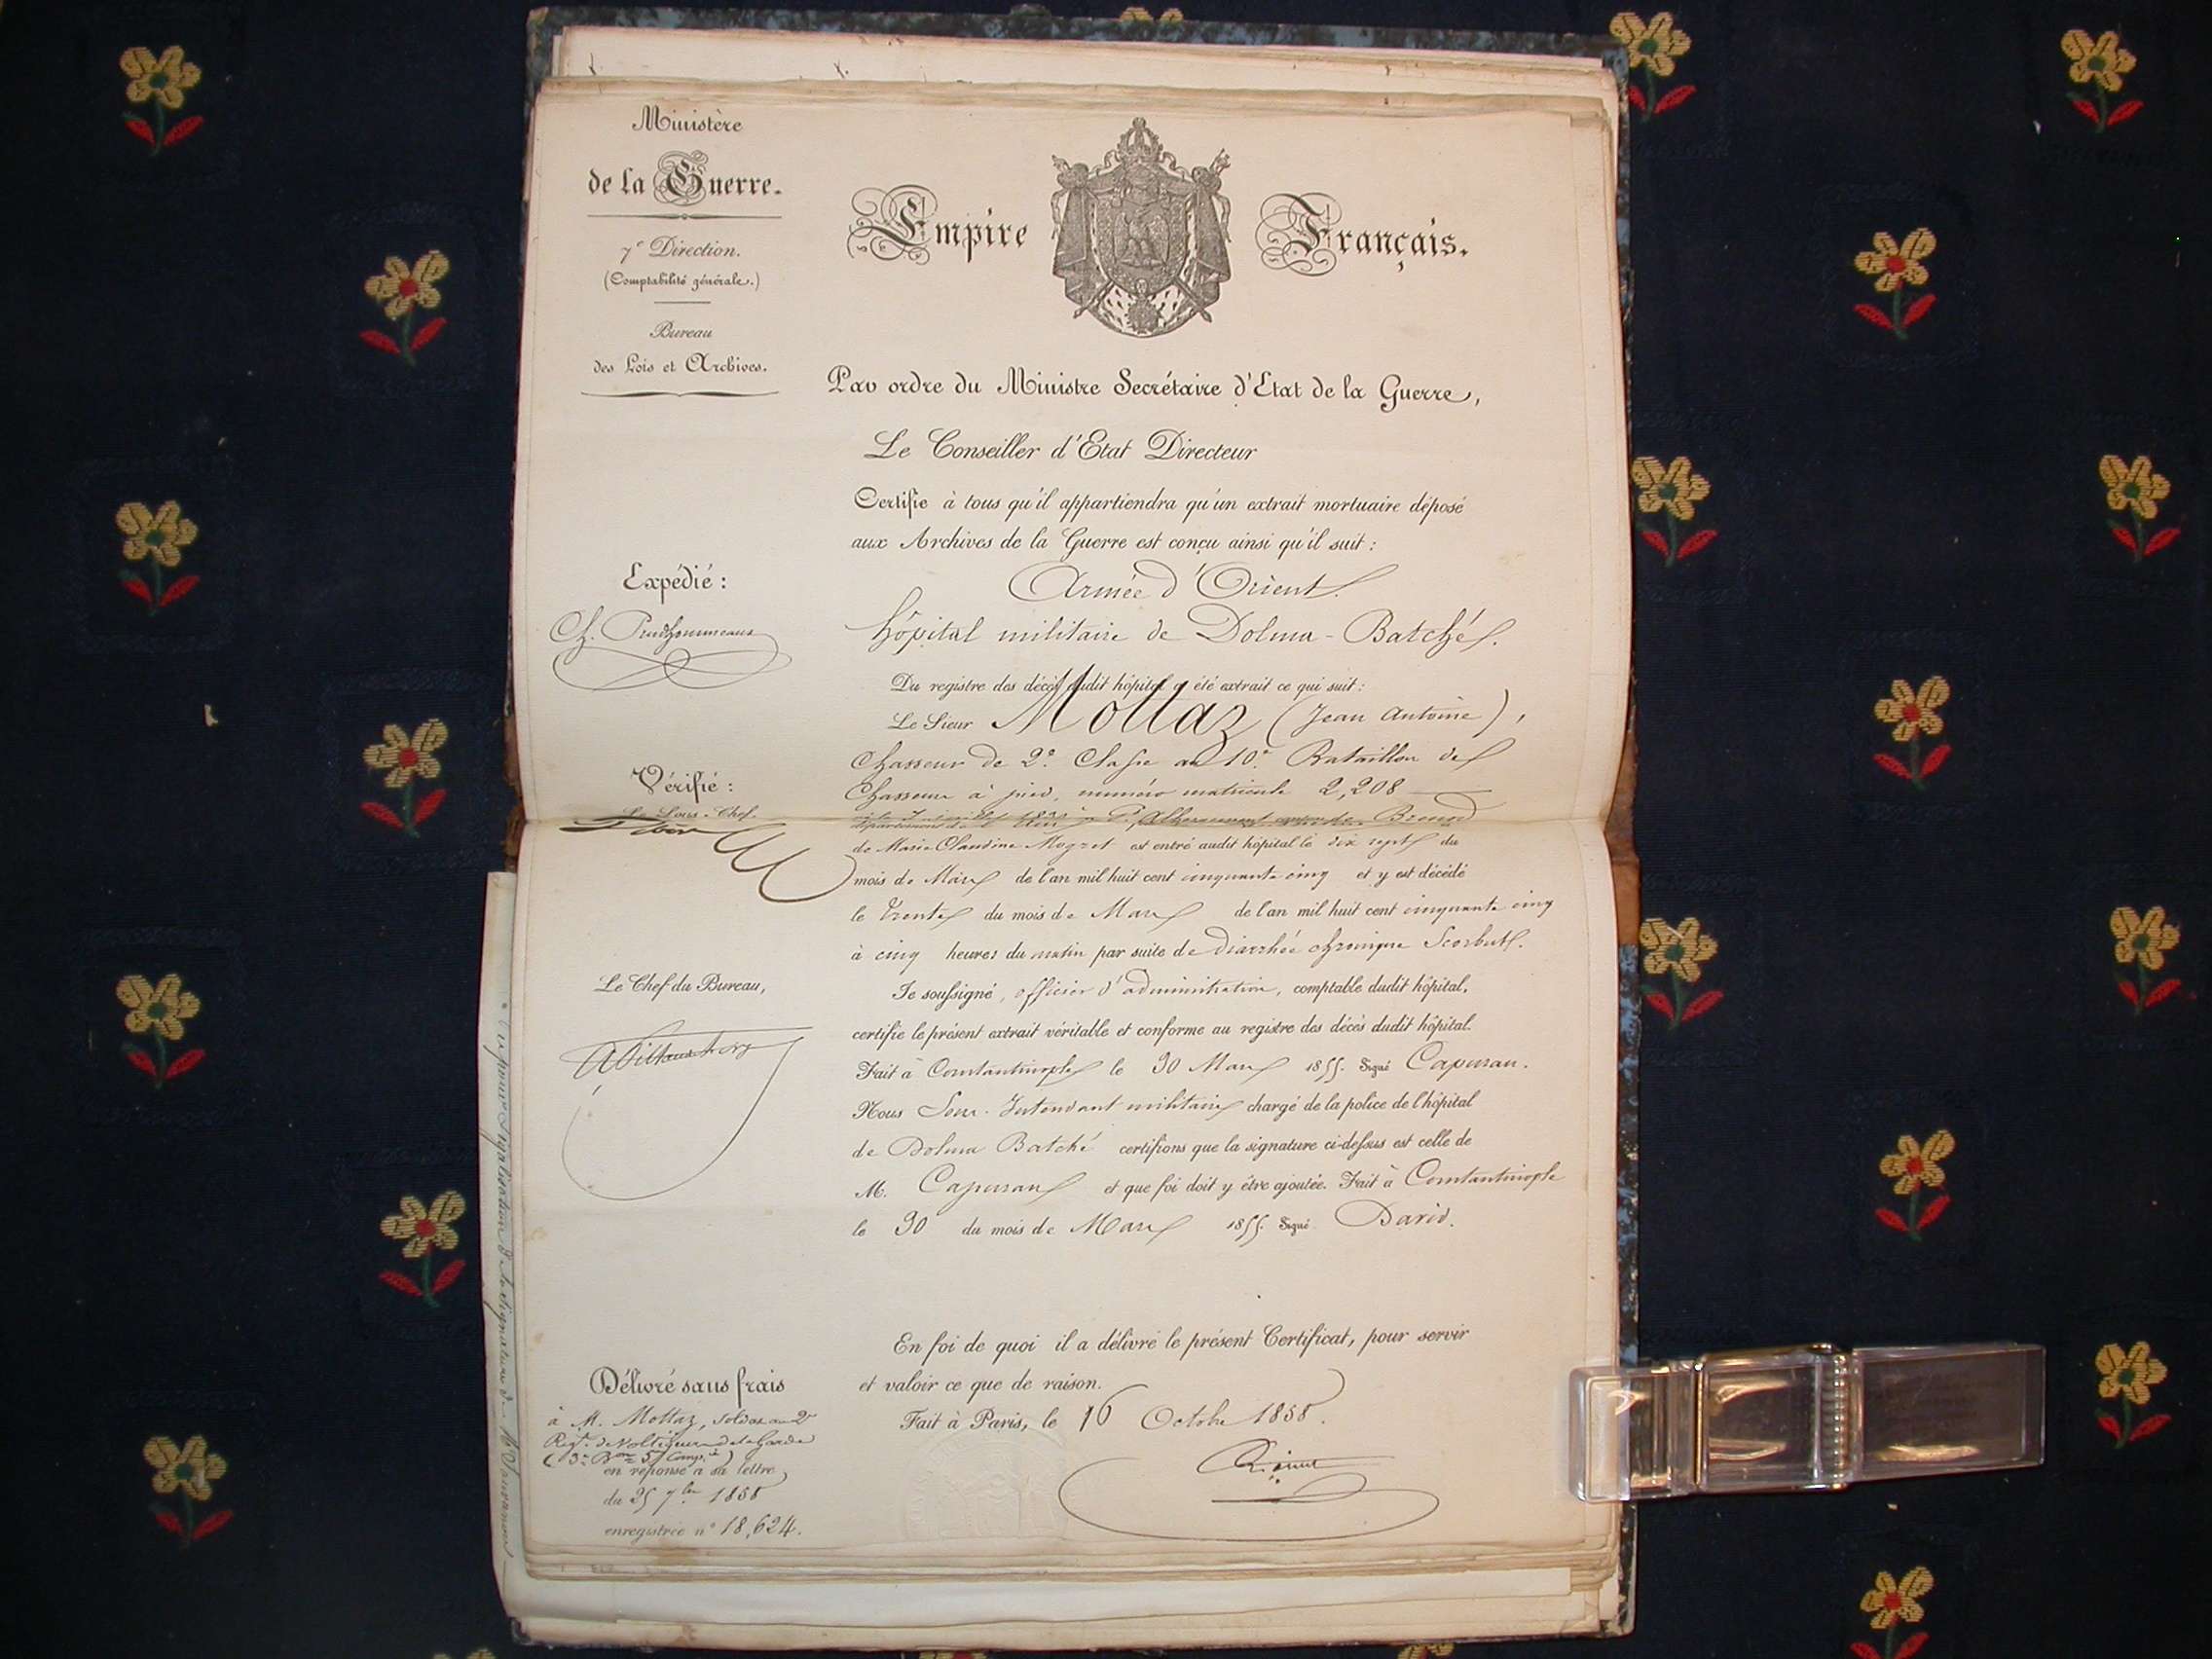 Ministère
de la Guerre.
7e Direction.
(Comptabilité générale.)
Bureau
des Lois et Archives.
Empire Français.
Par ordre du Ministre Secrétaire d'Etat de la Guerre,
Le Conseiller d'Etat Directeur
Certifie à tous qu'il appartiendra qu'un extrait mortuaire déposé
aux Archives de la Guerre est conçu ainsi qu'il suit :
Armée d'Orient.
hôpital militaire de Dolma-Batché.
Du registre des décès dudit hôpital a été extrait ce qui suit :
Le Sieur Mottaz (Jean Antoine),
Chasseur de 2e Classe au 10e Bataillon de
Chasseurs à pied, numéro matricule 2,208
département de l'Ain
de Marie Claudine est entré audit hôpital le dix sept du
mois de Mars de l'an mil huit cent cinquante cinq et y est décédé
le trente du mois de Mars de l'an mil huit cent cinquante cinq
à cinq heures du matin par suite de Diarrhée chronique Scorbut.
Je soussigné, officier d'administration, comptable dudit hôpital,
certifie le présent extrait véritable et conforme au registre des décès dudit hôpital.
Fait à Constantinople le 30 Mars 1855. Signé Capuran.
Nous Sous-Intendant militaire chargé de la police de l'hôpital
de Dolma Batché certifions que la signature ci-dessus est celle de
M. Capuran et que foi doit y être ajoutée. Fait à Constantinople
le 30 du mois de Mars 1855. Signé David.
En foi de quoi il a délivré le présent Certificat, pour servir
et valoir ce que de raison.
Fait à Paris, le 16 Octobre 1858.
Expédié :
Ch. Prudhommeaux
Vérifié :
Le Sous-Chef.
Le Chef du Bureau,
Délivré sans frais
à M. Mottaz, soldat au 2e
Régt. de Voltigeurs de la Garde
(3e Bon 5e Compie)
en réponse à sa lettre
du 25 7bre 1858
enregistrée n° 18,624.